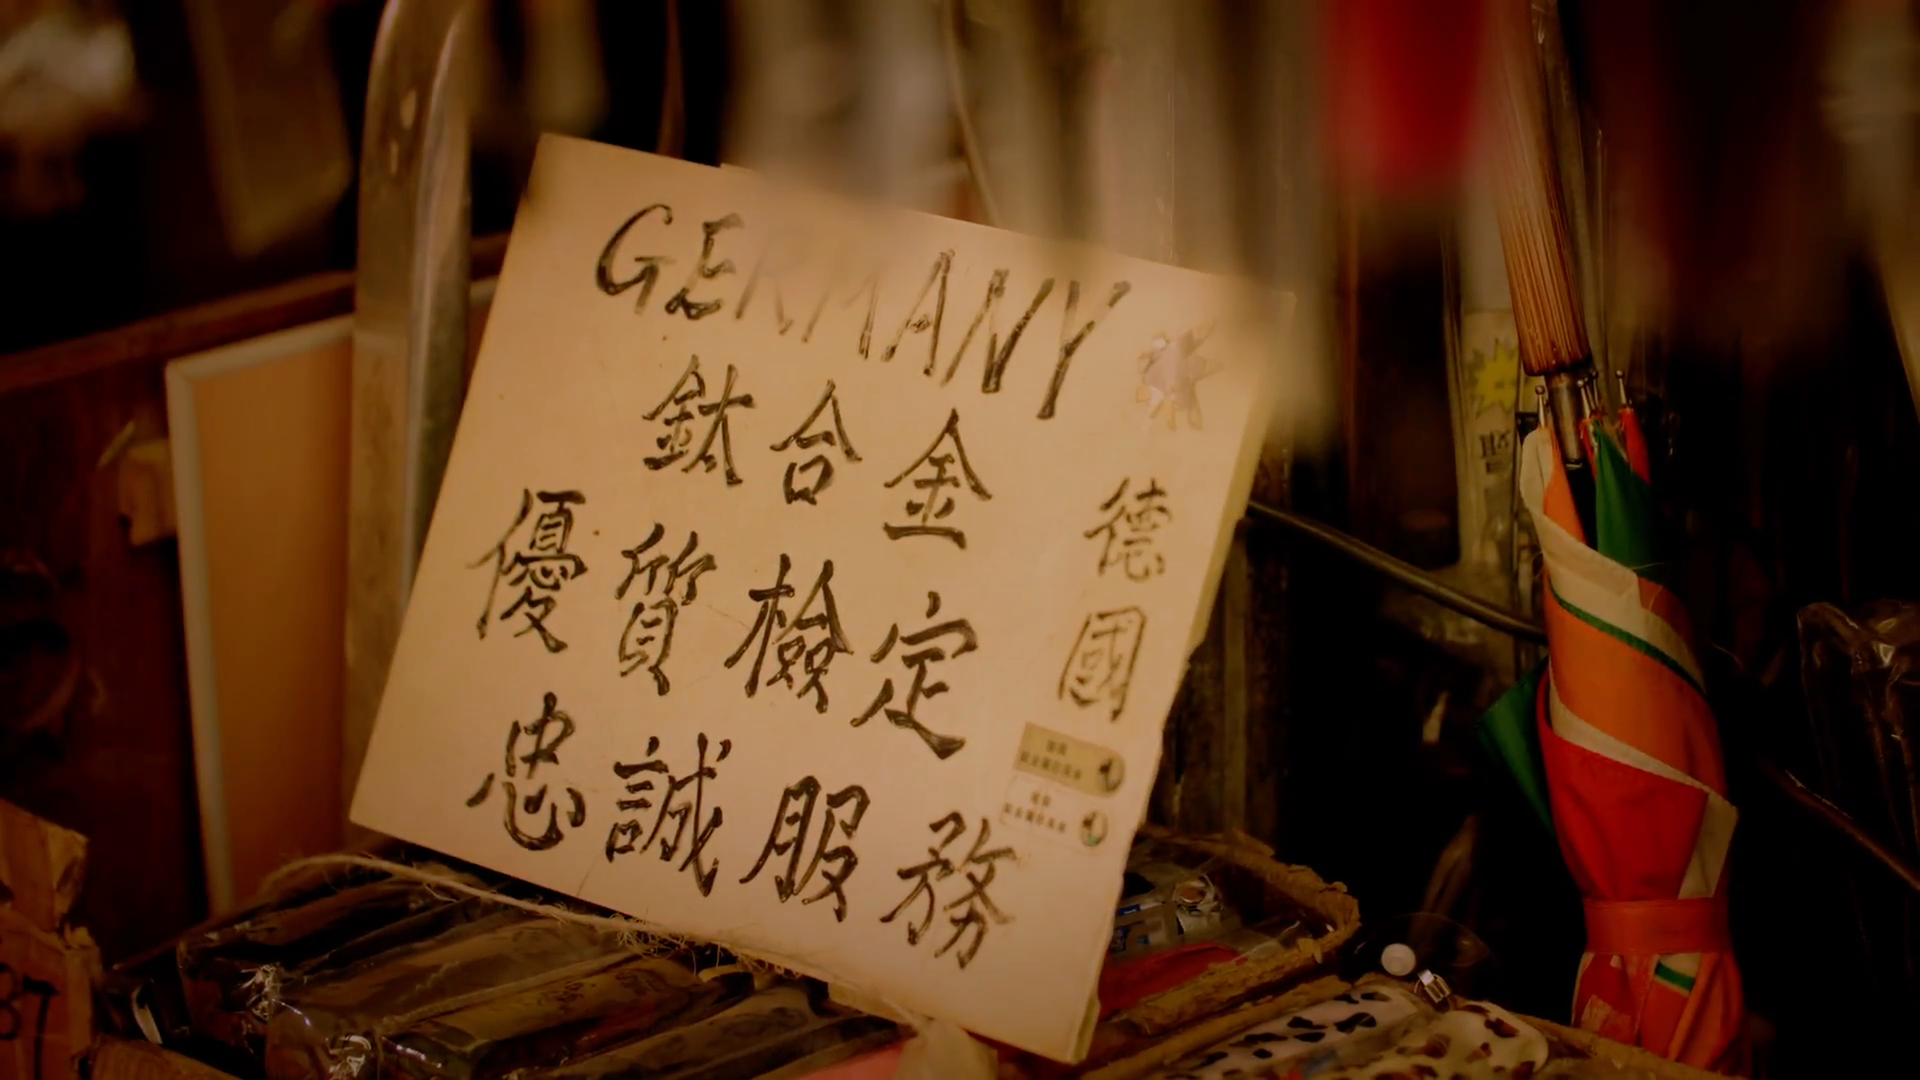 GERMANY
鈦合金
德國
優質檢定
忠誠服務